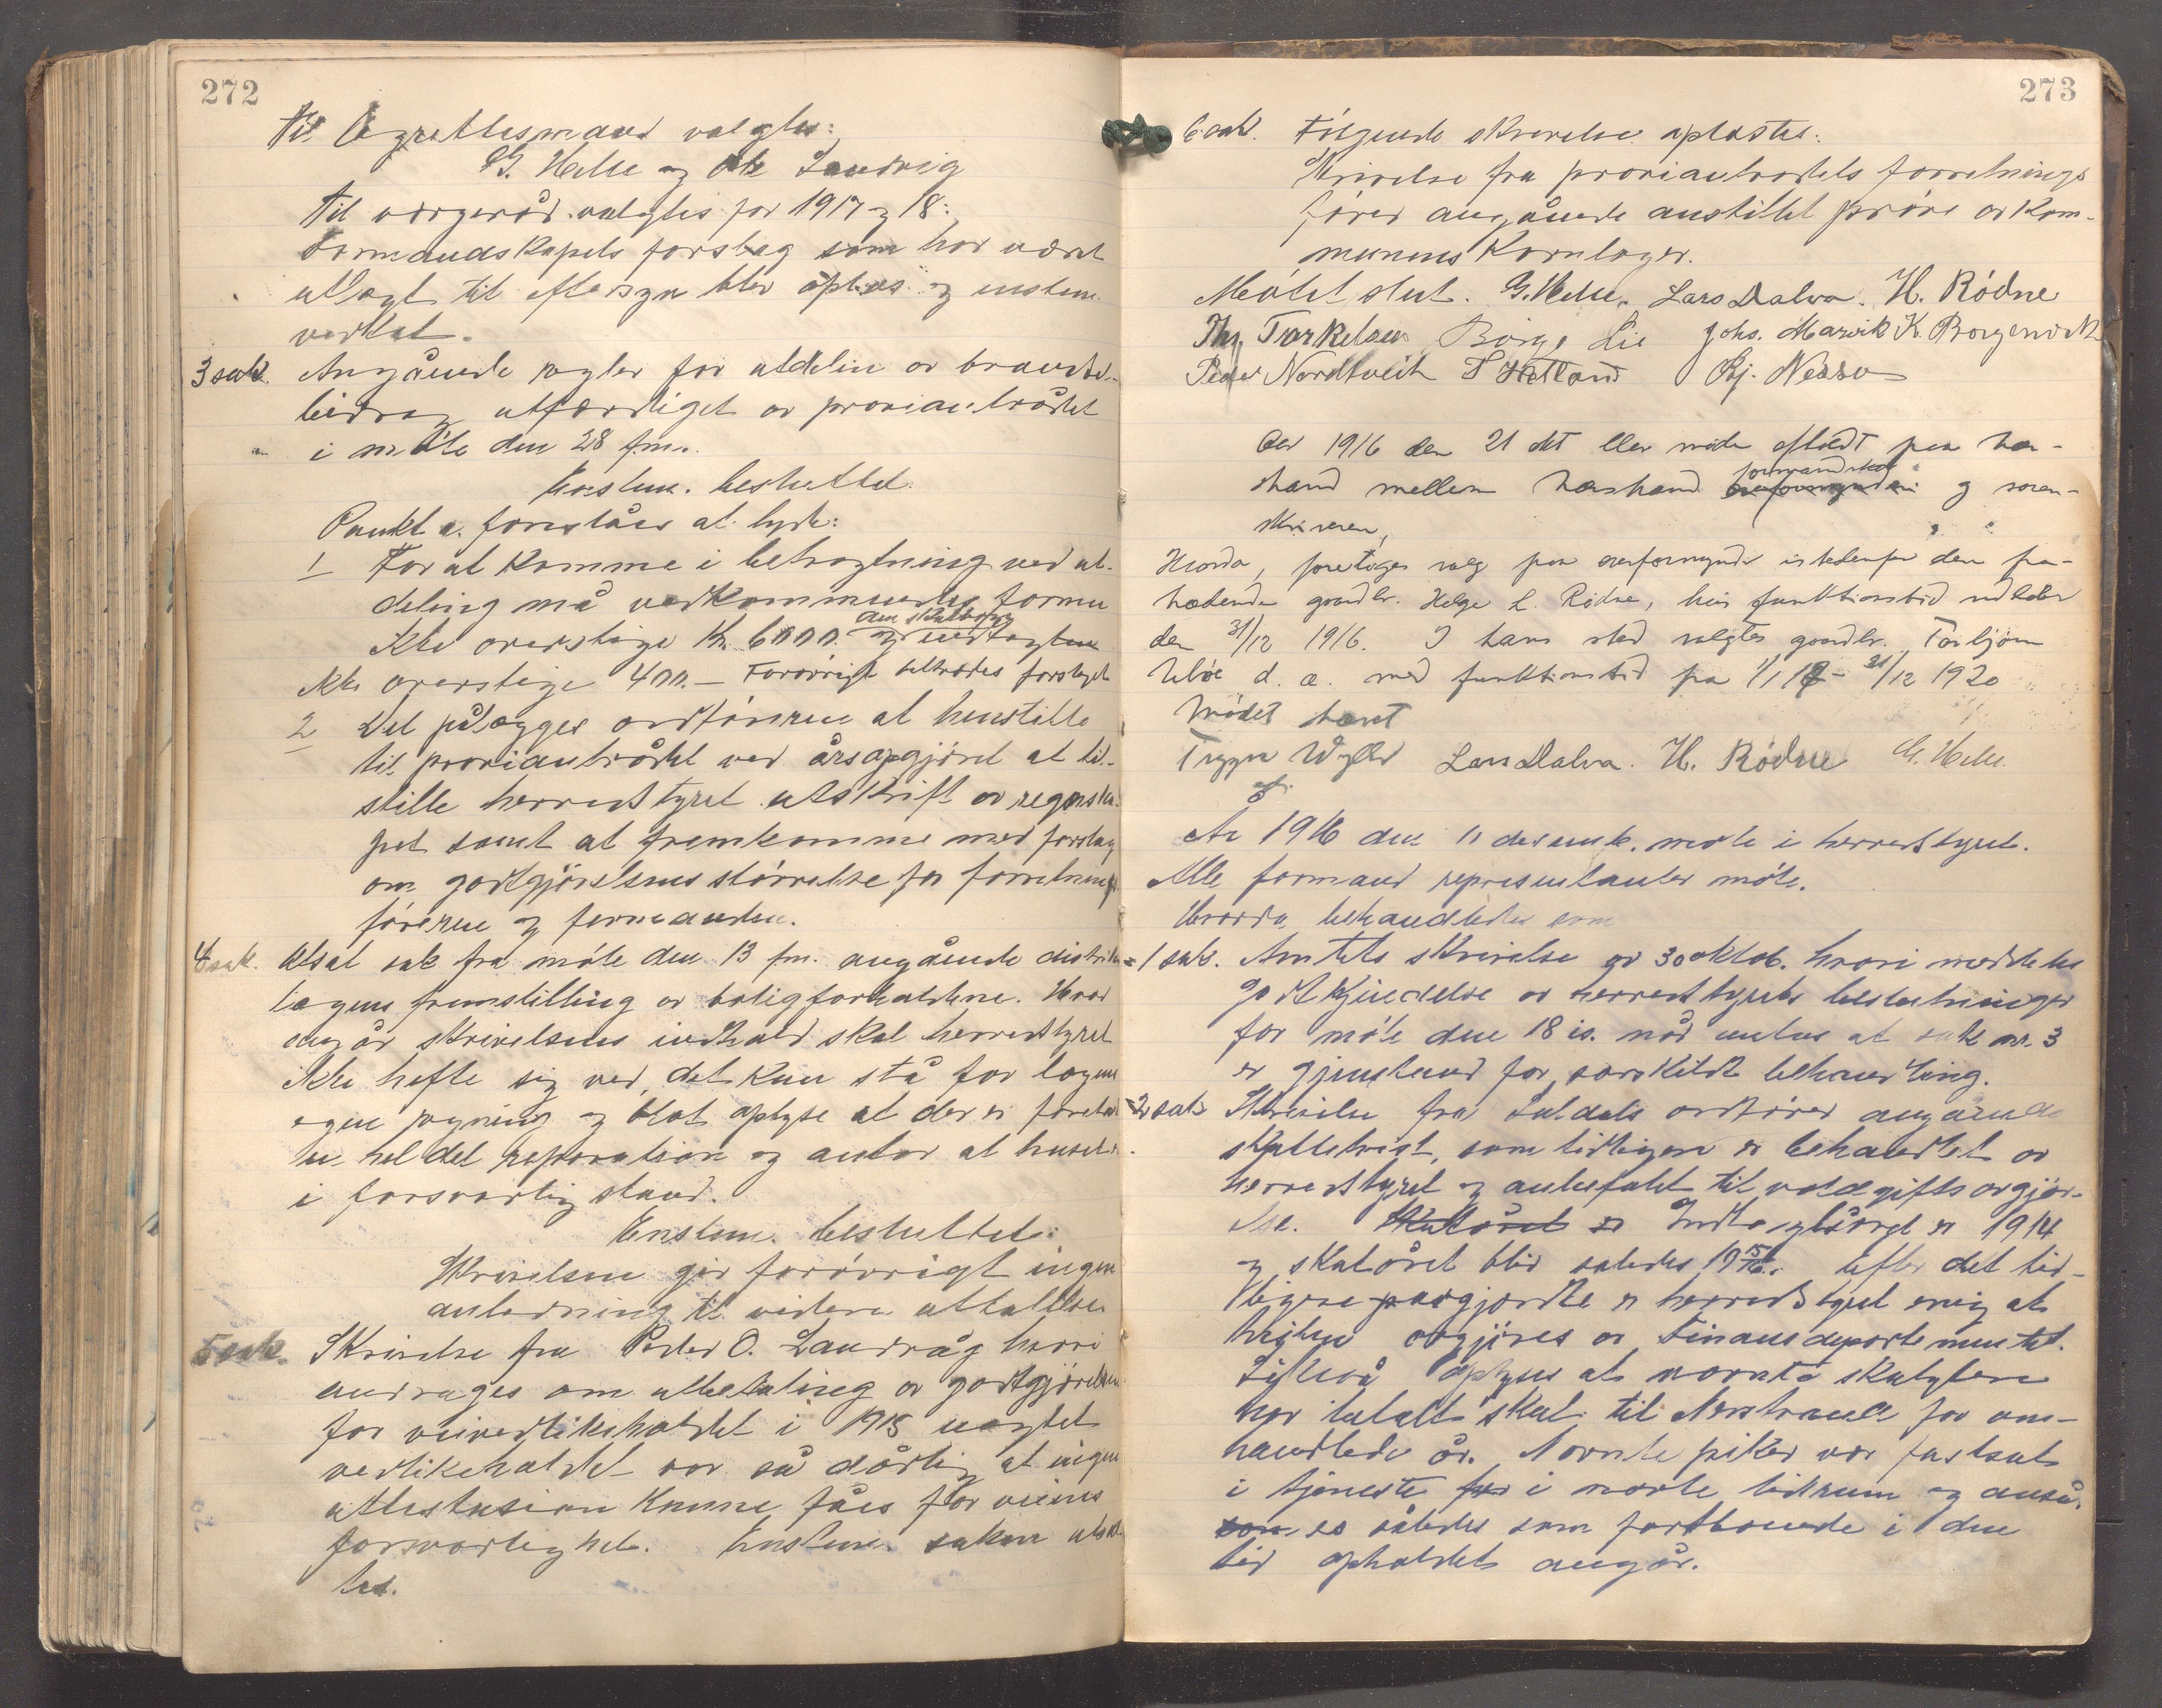 272
Til Ligretlismænd valgtes:
G. Helle og Ole Sandvig
Til værgeråd valgtes for 1917 og 18:
Formandskapets forslag som har været
utlagt til eftersyn blev oplæst og enstem.
vedtat.
3 sak. Angående regler for utdelin av brændsel-
bidrag utfærdiget av proviantrådet
i møte den 28 f.m.
Enstem. besluttet.
Punkt a. foreslåes at lyde:
1 For at komme i betragtning ved ut-
deling må vedkommendes formu
ikke overstige Kr. 6000. og indtægten
den skatbare
ikke overstige 400.— Forøvrigt tiltrædes forslaget
2 Det pålægges ordføreren at henstille
til proviantrådet ved årsopgjøret at til-
stille herredstyret utskrift av regnska-
pet samt at fremkomme med forslag
om godtgjørelsens størrelse for forretnings
føreren og formanden.
4 sak. Utsat sak fra møte den 13 f.m. angående distrikts
lægens fremstilling av boligforholdene. Hvad
angår skrivelsens indhold skal herredstyret
ikke hefte sig ved, det kan stå for lægens
egen regning og blot oplyse at der er foreta
en hel del reparation og antar at huset er
i forsvarlig stand.
Enstem. besluttet:
Skrivelsen gir forøvrigt ingen
anledning til videre uttalelse.
5 sak. Skrivelse fra Peder O. Landråg hvori
andrages om utbetaling av godtgjørelsen
for veivedlikeholdet i 1915 uagtet
vedlikeholdet var så dårlig at ingen
attestasion kunne fåes for veiens
forsvarlighet. Enstem. saken utsat
tes.
273
6 sak. Følgende skrivelse oplæstes:
Skrivelse fra proviantrådets forretnings
fører angående anstillet prøve av kom-
munens kornlager.
Møtet slut. G. Helle. Lars Dalva. H. Rødne
Thj. Torkelsen Børge Lie Johs. Marvik K. Borgenvik
Peder Nordtveit T Hetland Bj. Nessa
Aar 1916 den 21 okt blev møde afholdt paa Nær-
strand mellem Nærstrand overformynderi og soren-
formandskap
skriveren,
Hvorda, foretoges valg paa overformynder istedenfor den fra-
trædende gaardbr. Helge L. Rødne, hvis funktionstid udløber
den 31/12 1916. I hans sted valgtes gaardbr. Torbjørn
Løbø d. æ. med funktionstid fra 1/1 17 - 31/12 1920
Mødet hævet
Trygve Wyller Lars Dalva. H. Rødne G. Helle.
År 1916 den 11 desemb. møte i herredstyret.
Alle formænd representanter møtt.
Hvorda behandledes som
1 sak. Amtets skrivelse av 30 oktob. hvori meddeles
godkjendelse av herredstyrets beslutninger
for møte den 18 is. når undtas at sak nr. 3
er gjenstand for særskildt behandling.
2 sak Skrivelse fra Suldals ordfører angående
skattetvist, som tidligere er behandlet av
herredstyret og anbefalet til voldgiftsavgjør-
else. Skatåret er Indtægtsåret er 1914
og skatåret blir således 1915/16. Efter det tid-
ligere pasgjordte er herredstyret enig at
tvisten avgjøres av Finansdepartementet.
Tillike oplyses at nævnte skatytere
har betalt skat til Nærstrand for om-
handlede år. Nævnte piker var fastsat
i tjeneste for i nævte tidrum og ansås
som es således som fastboende i den
tid opholdet angår.